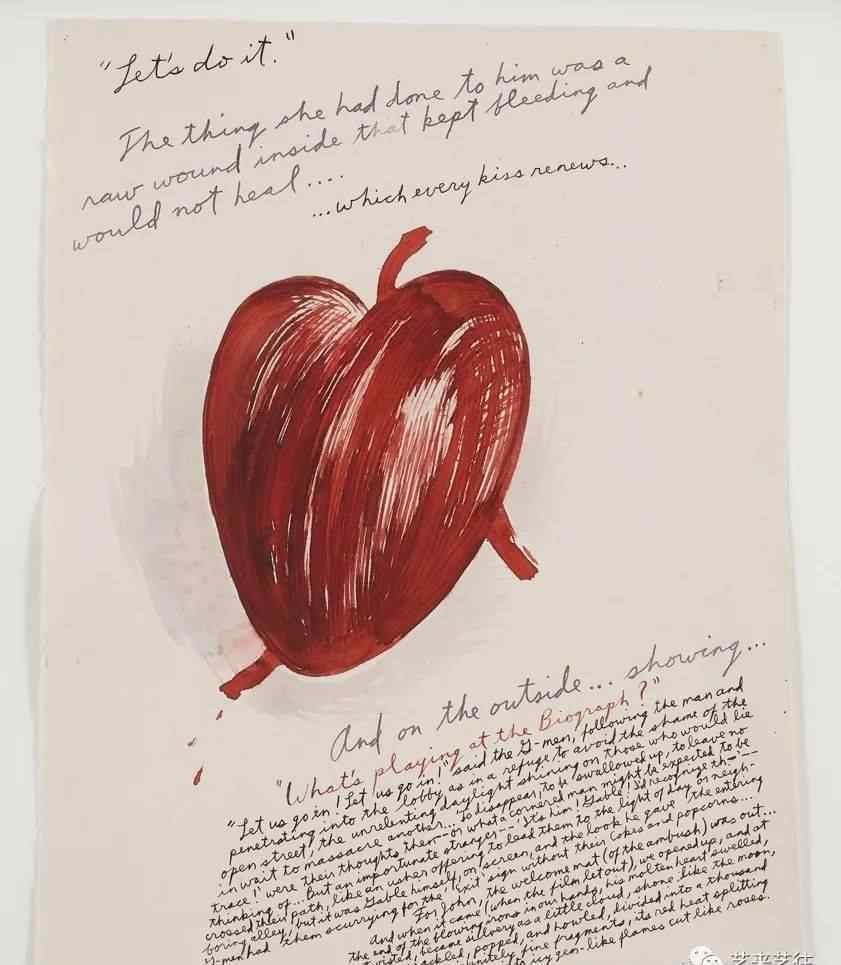 "Let's do it."
The thing she had done to him was a
raw wound inside that kept bleeding and
would not heal....
...which every kiss renews...
And on the outside... showing...
"What's playing at the Biograph?"
"Let us go in! Let us go in!" said the G-men, following the man and
penetrating into the lobby as in a refuge, to avoid the shame of the
open street, the unrelenting daylight shining on those who would lie
in wait to massacre another... To disappear, to be swallowed up, to leave no
trace!" were their thoughts then--or what a cornered man might be expected to be
thinking of... But an importunate stranger--"It's him! Gable! I'd recognize th---
crossed their path, like an usher offering to lead them to the light of day or neigh-
boring alley, but it was Gable himself, on screen, and the look he gave the entering
G-men had them scurrying for the 'Exit' sign without their Cokes and popcorns...
For John, the welcome mat (of the ambush) was out...
And when it came (when the film let out), we opened up, and at
the end of the blowing irons in our hands, his molten heart swelled,
twisted, became silvery as a little cloud, shone like the moon,
crackled, popped, and howled, divided into a thousand
infinitely fine fragments, its red heat splitting
to icy gem-like flames cut like roses.
艺来艺往